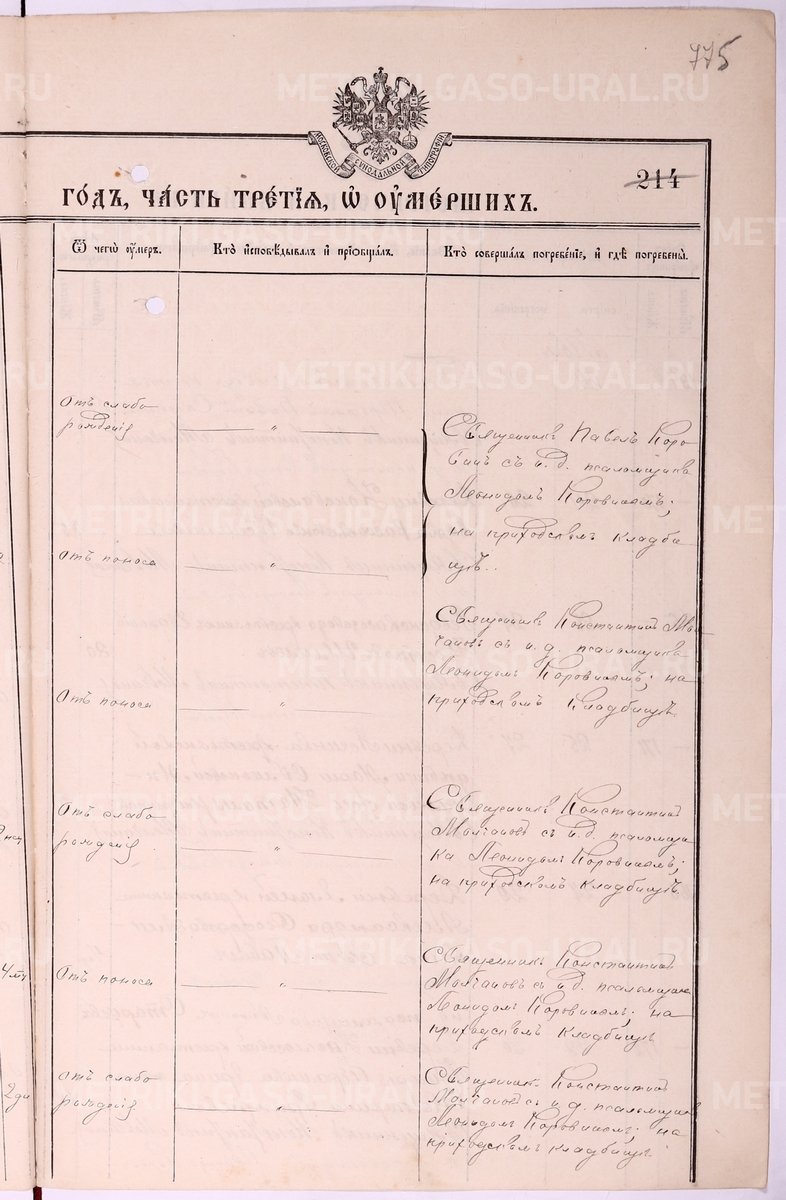 775
МОСКОВСКОЙ СѴНОДАЛЬНОЙ ТИПОГРАФІИ
214
ГОДЪ, ЧАСТЬ ТРЕТІЯ, Ѽ ОУМЕРШИХЪ.
Ѿ чегѡ оумеръ.
Кто исповѣдывалъ и приѡбщалъ.
Кто совершалъ погребенїе, и гдѣ погребены.
Отъ слабо
рожденія
"
Священникъ Павелъ Коро
винъ съ и. д. псаломщика
Леонидомъ Коровинымъ;
на приходскомъ кладби
щѣ..
Отъ поноса
"
Священникъ Константинъ Мол
чановъ съ и. д. псаломщика
Леонидомъ Коровинымъ; на
приходскомъ кладбищѣ
Отъ поноса
"
Отъ слабо
рожденія
"
Священникъ Константинъ
Молчановъ съ и. д. псаломщи
ка Леонидомъ Коровинымъ;
на приходскомъ кладбищѣ.
4
Отъ поноса
"
Священникъ Константинъ
Молчановъ съ и. д. псаломщика
Леонидомъ Коровинымъ; на
приходскомъ кладбищѣ
2 дн
Отъ слабо
рожденія
"
Священникъ Константинъ
Молчановъ съ и. д. псаломщика
Леонидомъ Коровинымъ; на
приходскомъ кладбищѣ
METRIKI.GASO-URAL.RU